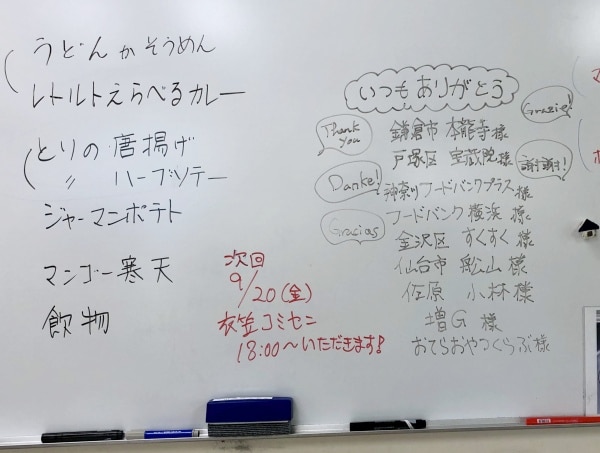 うどんかそうめん
レトルトえらべるカレー
とりの唐揚げ
〃 ハーブソテー
ジャーマンポテト
マンゴー寒天
飲物
次回
9/20(金)
衣笠コミセン
18:00〜いただきます!
いつもありがとう
Grazie!
Thank you
鎌倉市 本龍寺様
戸塚区 宝蔵院様
謝謝!
Danke!
神奈川フードバンクプラス様
フードバンク横浜 様
Gracias
金沢区 すくすく 様
仙台市 船山 様
佐原 小林様
増G 様
おてらおやつくらぶ様